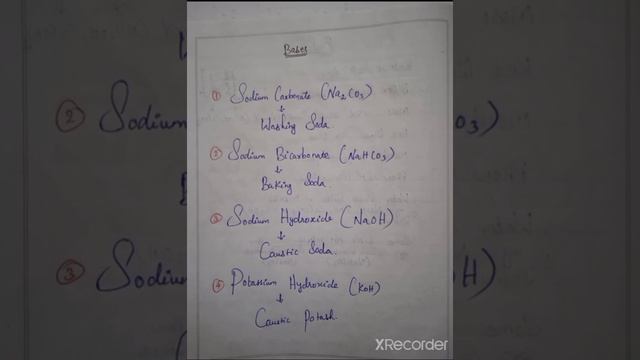 Bases
① Sodium Carbonate (Na2CO3)
↓
Washing Soda
② Sodium Bicarbonate (NaHCO3)
↓
Baking Soda.
③ Sodium Hydroxide (NaOH)
↓
Caustic Soda.
④ Potassium Hydroxide (KOH)
↓
Caustic Potash.
XRecorder
② Sodium
O3)
③ Sodium
H)